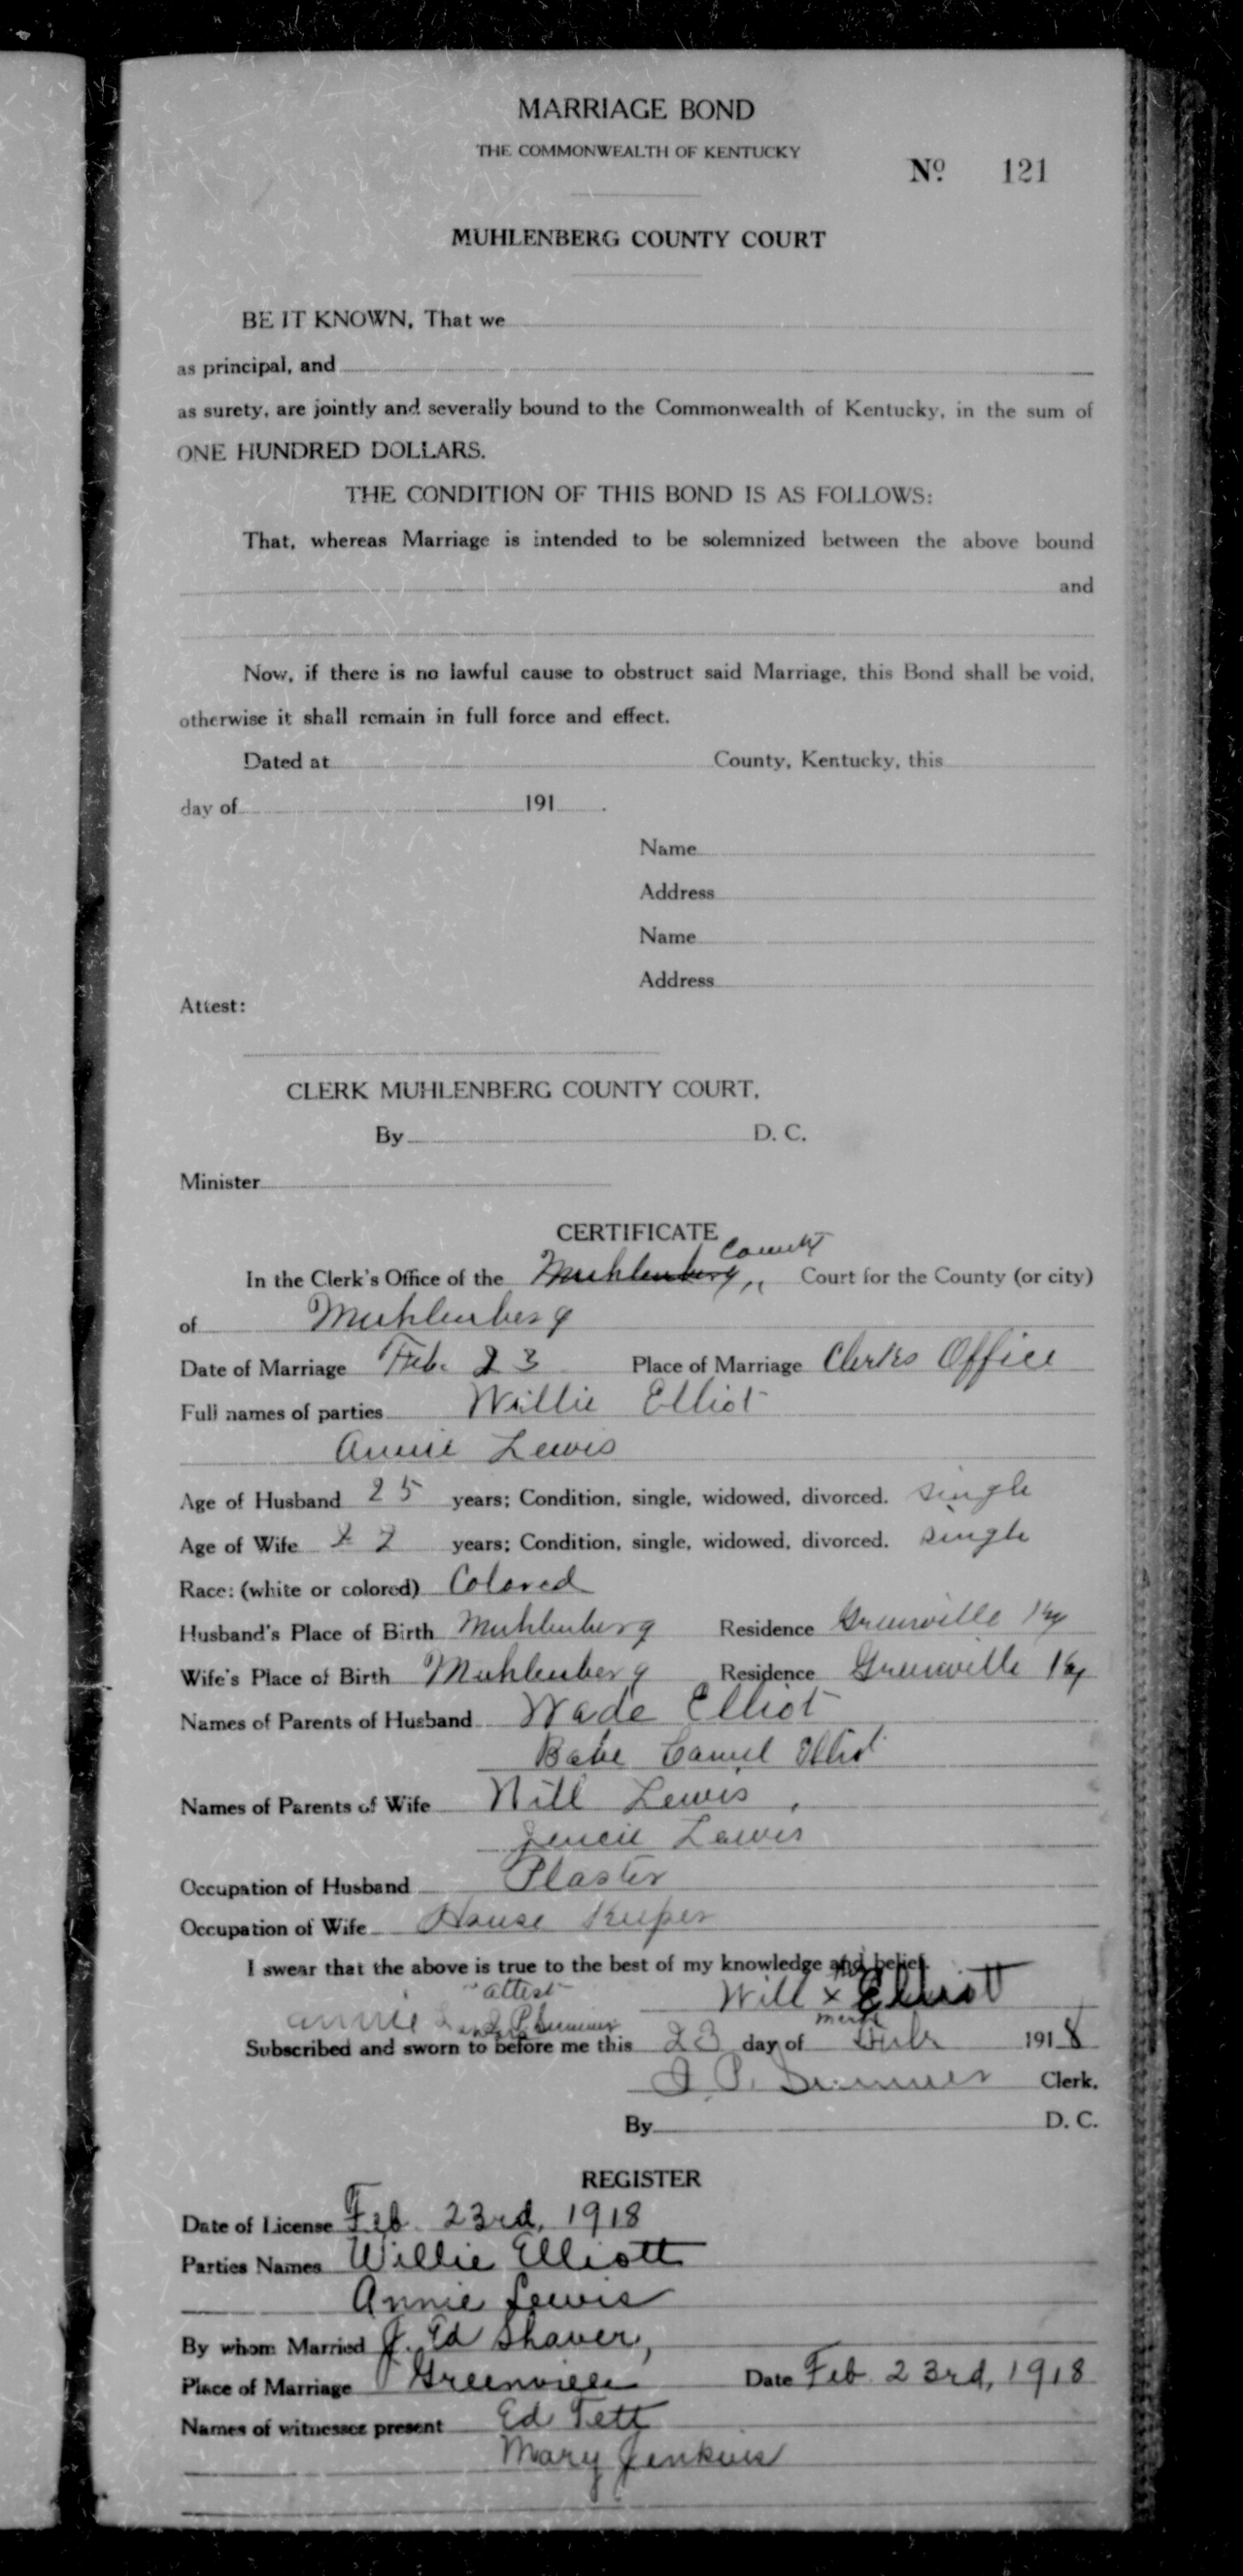 MARRIAGE BOND
THE COMMONWEALTH OF KENTUCKY
No. 121
MUHLENBERG COUNTY COURT
BE IT KNOWN, That we
as principal, and
as surety, are jointly and severally bound to the Commonwealth of Kentucky, in the sum of
ONE HUNDRED DOLLARS.
THE CONDITION OF THIS BOND IS AS FOLLOWS:
That, whereas Marriage is intended to be solemnized between the above bound
and
Now, if there is no lawful cause to obstruct said Marriage, this Bond shall be void,
otherwise it shall remain in full force and effect.
Dated at County, Kentucky, this
day of 191 .
Name
Address
Name
Address
Attest:
CLERK MUHLENBERG COUNTY COURT,
By D. C.
Minister
CERTIFICATE
County
In the Clerk's Office of the Muhlenberg Court for the County (or city)
of Muhlenberg
Date of Marriage Feb. 23 Place of Marriage Clerks Office
Full names of parties Willie Elliot
Annie Lewis
Age of Husband 25 years; Condition, single, widowed, divorced. single
Age of Wife 22 years; Condition, single, widowed, divorced. single
Race: (white or colored) Colored
Husband's Place of Birth Muhlenberg Residence Greenville Ky
Wife's Place of Birth Muhlenberg Residence Greenville Ky
Names of Parents of Husband Wade Elliot
Babe Elliot
Names of Parents of Wife Will Lewis
Lewis
Occupation of Husband Plaster
Occupation of Wife House Keeper
I swear that the above is true to the best of my knowledge and belief.
attest Will x Elliott
Annie mark
Subscribed and sworn to before me this 23 day of Feb 1918
Clerk.
By D. C.
REGISTER
Date of License Feb. 23rd, 1918
Parties Names Willie Elliott
Annie Lewis
By whom Married J. Ed Shaver,
Place of Marriage Greenville Date Feb. 23rd, 1918
Names of witnesses present Ed Tett
Mary Jenkins